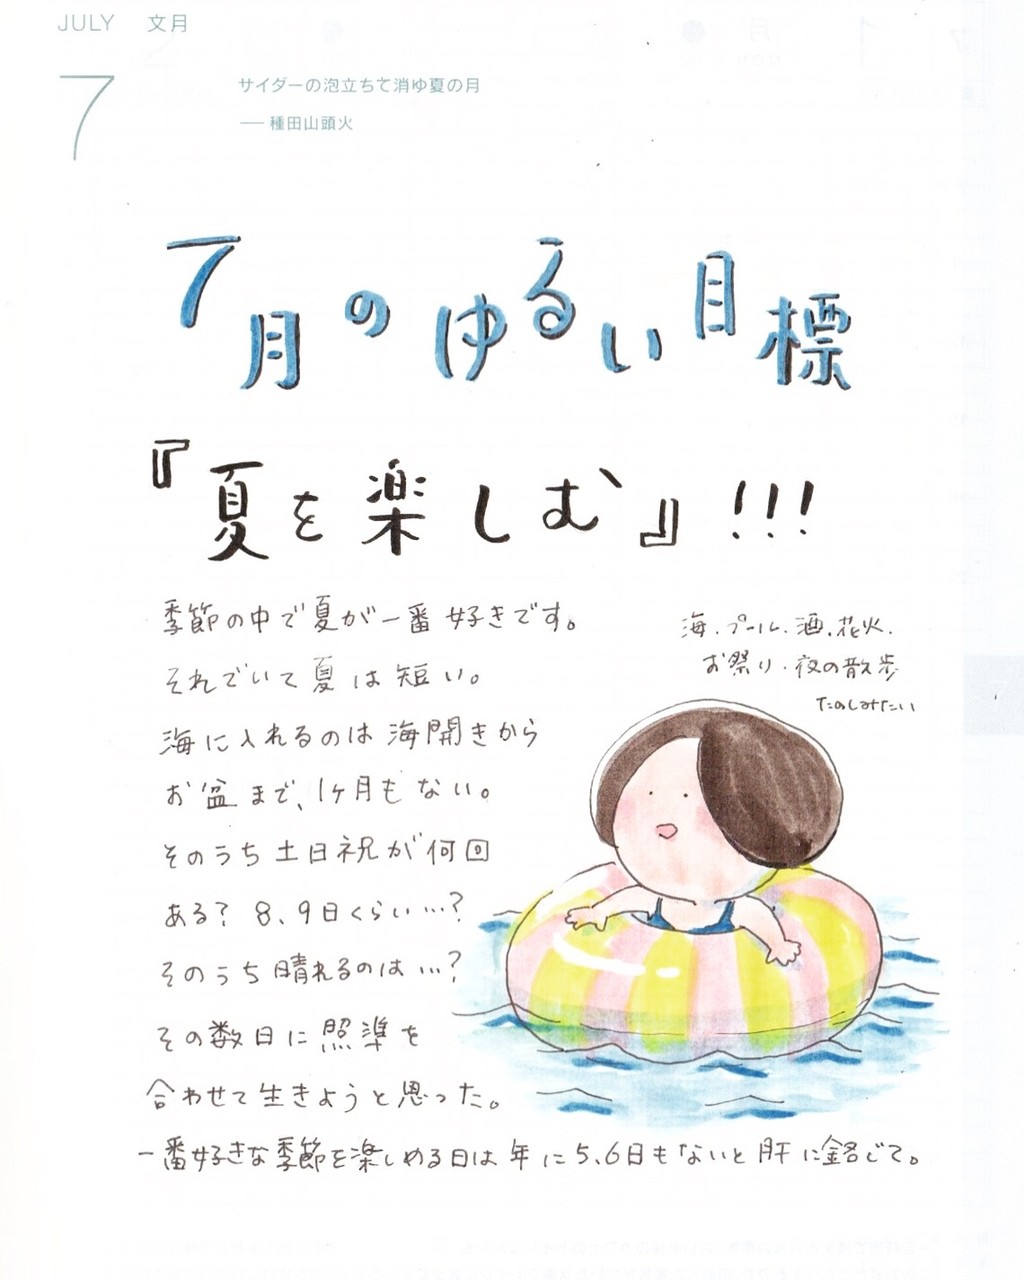 JULY 文月
7
サイダーの泡立ちて消ゆ夏の月
── 種田山頭火
7月のゆるい目標
『夏を楽しむ』!!!
季節の中で夏が一番好きです。
それでいて夏は短い。
海に入れるのは海開きから
お盆まで、1ヶ月もない。
そのうち土日祝が何回
ある? 8、9日くらい…?
そのうち晴れるのは…?
その数日に照準を
合わせて生きようと思った。
一番好きな季節を楽しめる日は年に5、6日もないと肝に銘じて。
海.プール.酒.花火.
お祭り.夜の散歩
たのしみたい